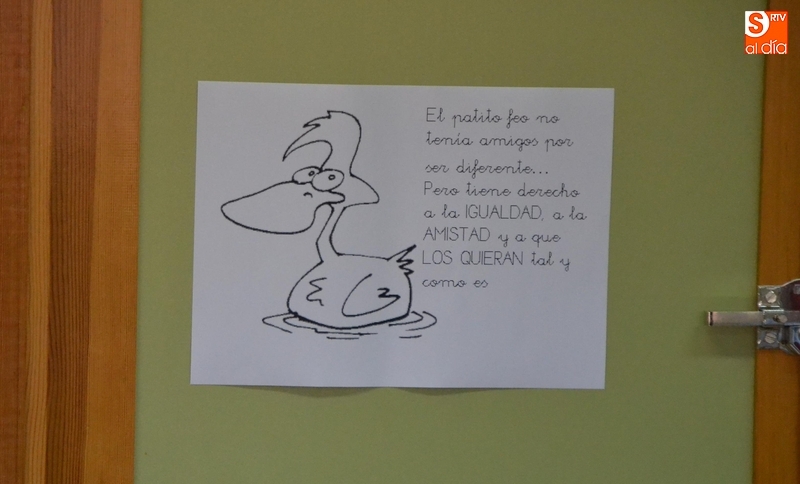 El patito feo no
tenía amigos por
ser diferente...
Pero tiene derecho
a la IGUALDAD, a la
AMISTAD y a que
LOS QUIERAN tal y
como es
S RTV
al día